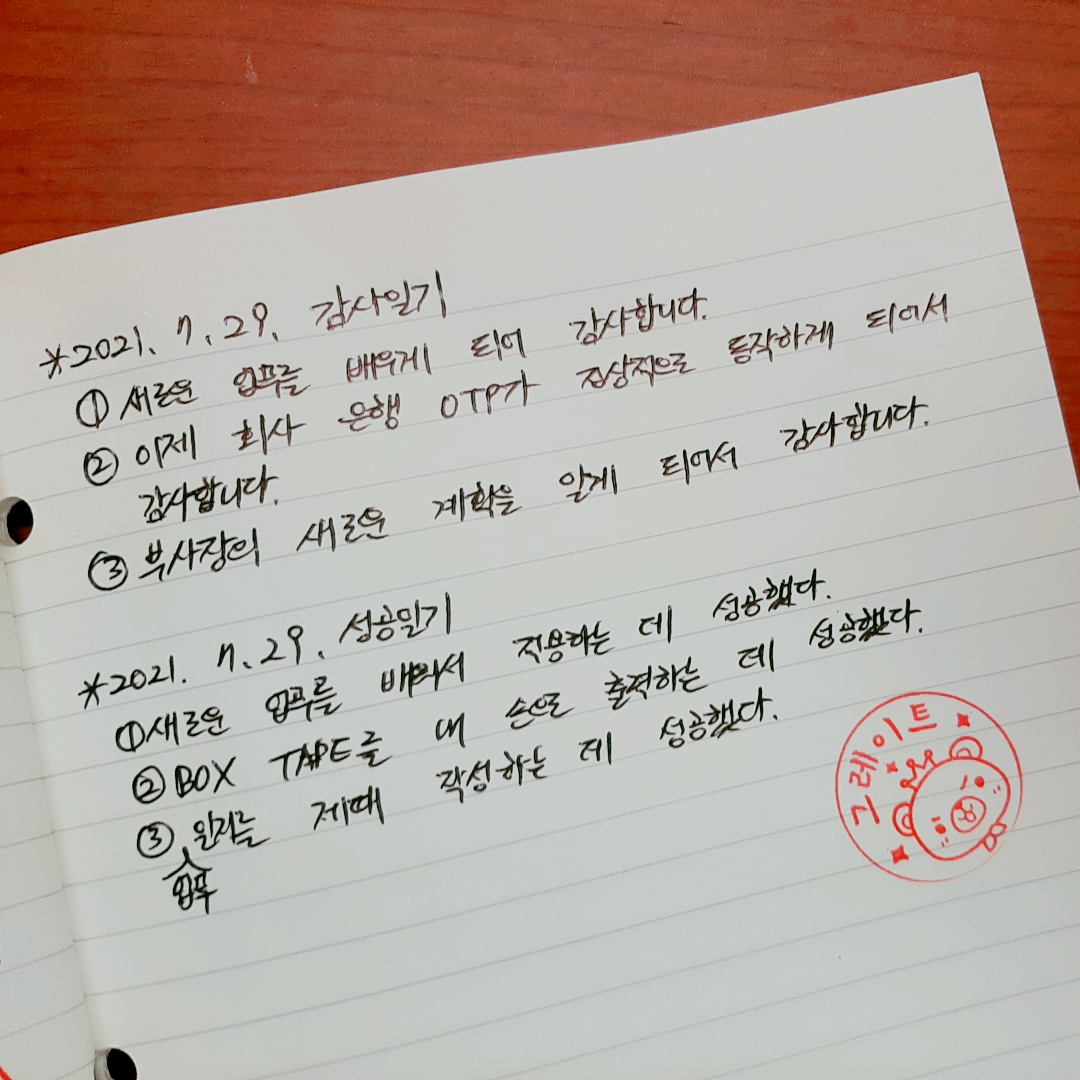 *2021. 7. 29. 감사일기
① 새로운 업무를 배우게 되어 감사합니다.
② 이제 회사 은행 OTP가 정상적으로 동작하게 되어서
감사합니다.
③ 부사장의 새로운 계획을 알게 되어서 감사합니다.
*2021. 7. 29. 성공일기
① 새로운 업무를 배워서 적용하는 데 성공했다.
② BOX TAPE를 내 손으로 출력하는 데 성공했다.
③ 일지를 제때 작성하는 데 성공했다.
업무
그레이트